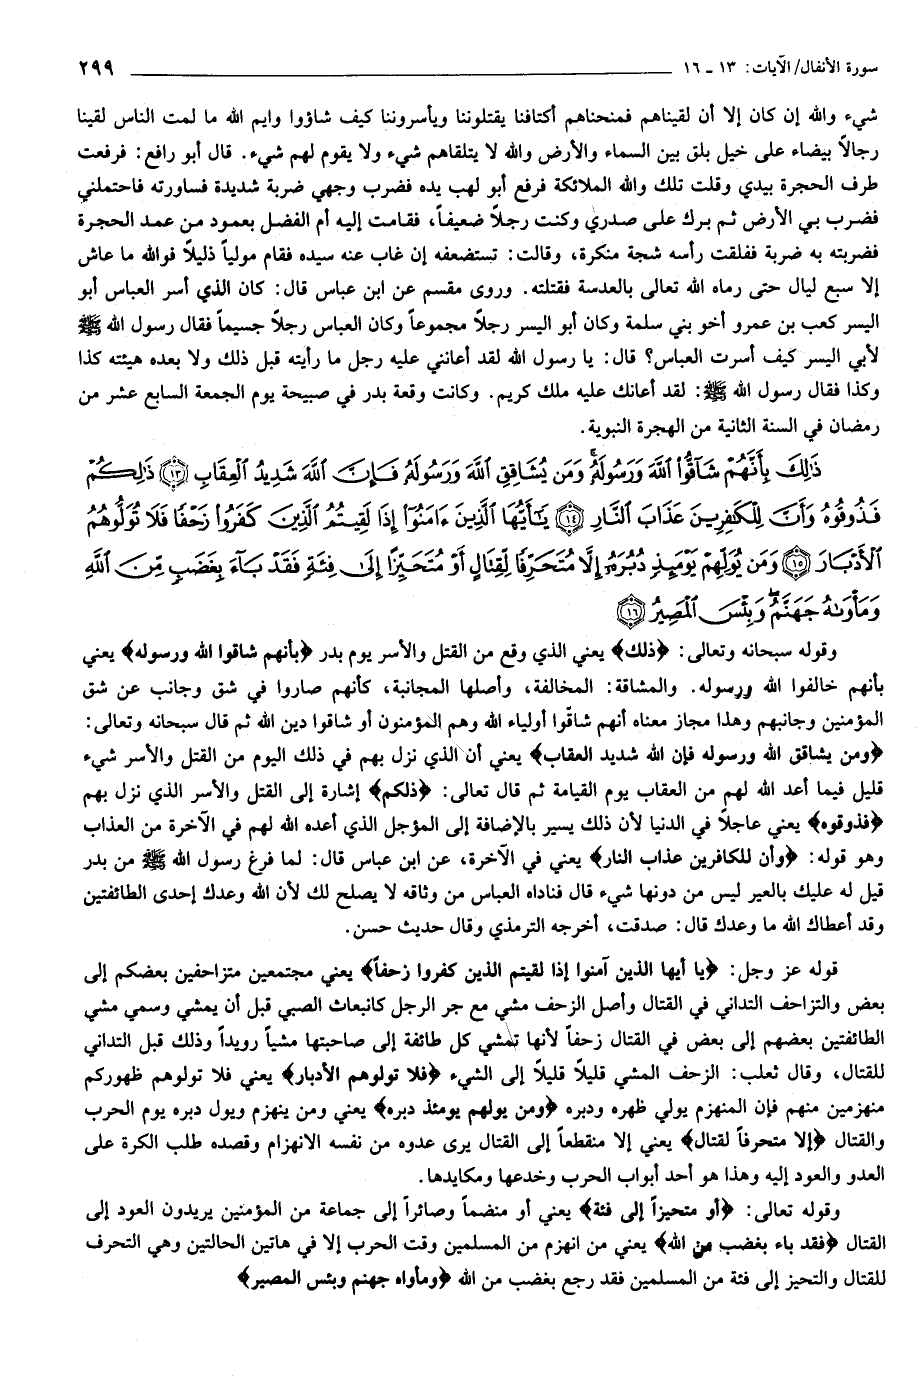 سورة الأنفال/ الآيات: ١٣ ـ ١٦ ٢٩٩
شيء والله إن كان إلا أن لقيناهم فمنحناهم أكتافنا يقتلوننا ويأسروننا كيف شاؤوا وايم الله ما لمت الناس لقينا
رجالاً بيضاء على خيل بلق بين السماء والأرض والله لا يتلقاهم شيء ولا يقوم لهم شيء. قال أبو رافع: فرفعت
طرف الحجرة بيدي وقلت تلك والله الملائكة فرفع أبو لهب يده فضرب وجهي ضربة شديدة فساورته فاحتملني
فضرب بي الأرض ثم برك على صدري وكنت رجلاً ضعيفاً، فقامت إليه أم الفضل بعمود من عمد الحجرة
فضربته به ضربة ففلقت رأسه شجة منكرة، وقالت: تستضعفه إن غاب عنه سيده فقام مولياً ذليلاً فوالله ما عاش
إلا سبع ليال حتى رماه الله تعالى بالعدسة فقتلته. وروى مقسم عن ابن عباس قال: كان الذي أسر العباس أبو
اليسر كعب بن عمرو أخو بني سلمة وكان أبو اليسر رجلاً مجموعاً وكان العباس رجلاً جسيماً فقال رسول الله ﷺ
لأبي اليسر كيف أسرت العباس؟ قال: يا رسول الله لقد أعانني عليه رجل ما رأيته قبل ذلك ولا بعده هيئته كذا
وكذا فقال رسول الله ﷺ: لقد أعانك عليه ملك كريم. وكانت وقعة بدر في صبيحة يوم الجمعة السابع عشر من
رمضان في السنة الثانية من الهجرة النبوية.
ذَٰلِكَ بِأَنَّهُمْ شَآقُّوا۟ ٱللَّهَ وَرَسُولَهُۥ وَمَن يُشَاقِقِ ٱللَّهَ وَرَسُولَهُۥ فَإِنَّ ٱللَّهَ شَدِيدُ ٱلْعِقَابِ ۝١٣ ذَٰلِكُمْ
فَذُوقُوهُ وَأَنَّ لِلْكَٰفِرِينَ عَذَابَ ٱلنَّارِ ۝١٤ يَٰٓأَيُّهَا ٱلَّذِينَ ءَامَنُوٓا۟ إِذَا لَقِيتُمُ ٱلَّذِينَ كَفَرُوا۟ زَحْفًا فَلَا تُوَلُّوهُمُ
ٱلْأَدْبَارَ ۝١٥ وَمَن يُوَلِّهِمْ يَوْمَئِذٍ دُبُرَهُۥٓ إِلَّا مُتَحَرِّفًا لِّقِتَالٍ أَوْ مُتَحَيِّزًا إِلَىٰ فِئَةٍ فَقَدْ بَآءَ بِغَضَبٍ مِّنَ ٱللَّهِ
وَمَأْوَىٰهُ جَهَنَّمُ وَبِئْسَ ٱلْمَصِيرُ ۝١٦
وقوله سبحانه وتعالى: ﴿ذلك﴾ يعني الذي وقع من القتل والأسر يوم بدر ﴿بأنهم شاقوا الله ورسوله﴾ يعني
بأنهم خالفوا الله ورسوله. والمشاقة: المخالفة، وأصلها المجانبة، كأنهم صاروا في شق وجانب عن شق
المؤمنين وجانبهم وهذا مجاز معناه أنهم شاقّوا أولياء الله وهم المؤمنون أو شاقوا دين الله ثم قال سبحانه وتعالى:
﴿ومن يشاقق الله ورسوله فإن الله شديد العقاب﴾ يعني أن الذي نزل بهم في ذلك اليوم من القتل والأسر شيء
قليل فيما أعد الله لهم من العقاب يوم القيامة ثم قال تعالى: ﴿ذلكم﴾ إشارة إلى القتل والأسر الذي نزل بهم
﴿فذوقوه﴾ يعني عاجلاً في الدنيا لأن ذلك يسير بالإضافة إلى المؤجل الذي أعده الله لهم في الآخرة من العذاب
وهو قوله: ﴿وأن للكافرين عذاب النار﴾ يعني في الآخرة، عن ابن عباس قال: لما فرغ رسول الله ﷺ من بدر
قيل له عليك بالعير ليس من دونها شيء قال فناداه العباس من وثاقه لا يصلح لك لأن الله وعدك إحدى الطائفتين
وقد أعطاك الله ما وعدك قال: صدقت، أخرجه الترمذي وقال حديث حسن.
قوله عز وجل: ﴿يا أيها الذين آمنوا إذا لقيتم الذين كفروا زحفاً﴾ يعني مجتمعين متزاحفين بعضكم إلى
بعض والتزاحف التداني في القتال وأصل الزحف مشي مع جر الرجل كانبعاث الصبي قبل أن يمشي وسمي مشي
الطائفتين بعضهم إلى بعض في القتال زحفاً لأنها تمشي كل طائفة إلى صاحبتها مشياً رويداً وذلك قبل التداني
للقتال، وقال ثعلب: الزحف المشي قليلاً قليلاً إلى الشيء ﴿فلا تولوهم الأدبار﴾ يعني فلا تولوهم ظهوركم
منهزمين منهم فإن المنهزم يولي ظهره ودبره ﴿ومن يولهم يومئذ دبره﴾ يعني ومن ينهزم ويول دبره يوم الحرب
والقتال ﴿إلا متحرفاً لقتال﴾ يعني إلا منقطعاً إلى القتال يرى عدوه من نفسه الانهزام وقصده طلب الكرة على
العدو والعود إليه وهذا هو أحد أبواب الحرب وخدعها ومكايدها.
وقوله تعالى: ﴿أو متحيزاً إلى فئة﴾ يعني أو منضماً وصائراً إلى جماعة من المؤمنين يريدون العود إلى
القتال ﴿فقد باء بغضب من الله﴾ يعني من انهزم من المسلمين وقت الحرب إلا في هاتين الحالتين وهي التحرف
للقتال والتحيز إلى فئة من المسلمين فقد رجع بغضب من الله ﴿ومأواه جهنم وبئس المصير﴾